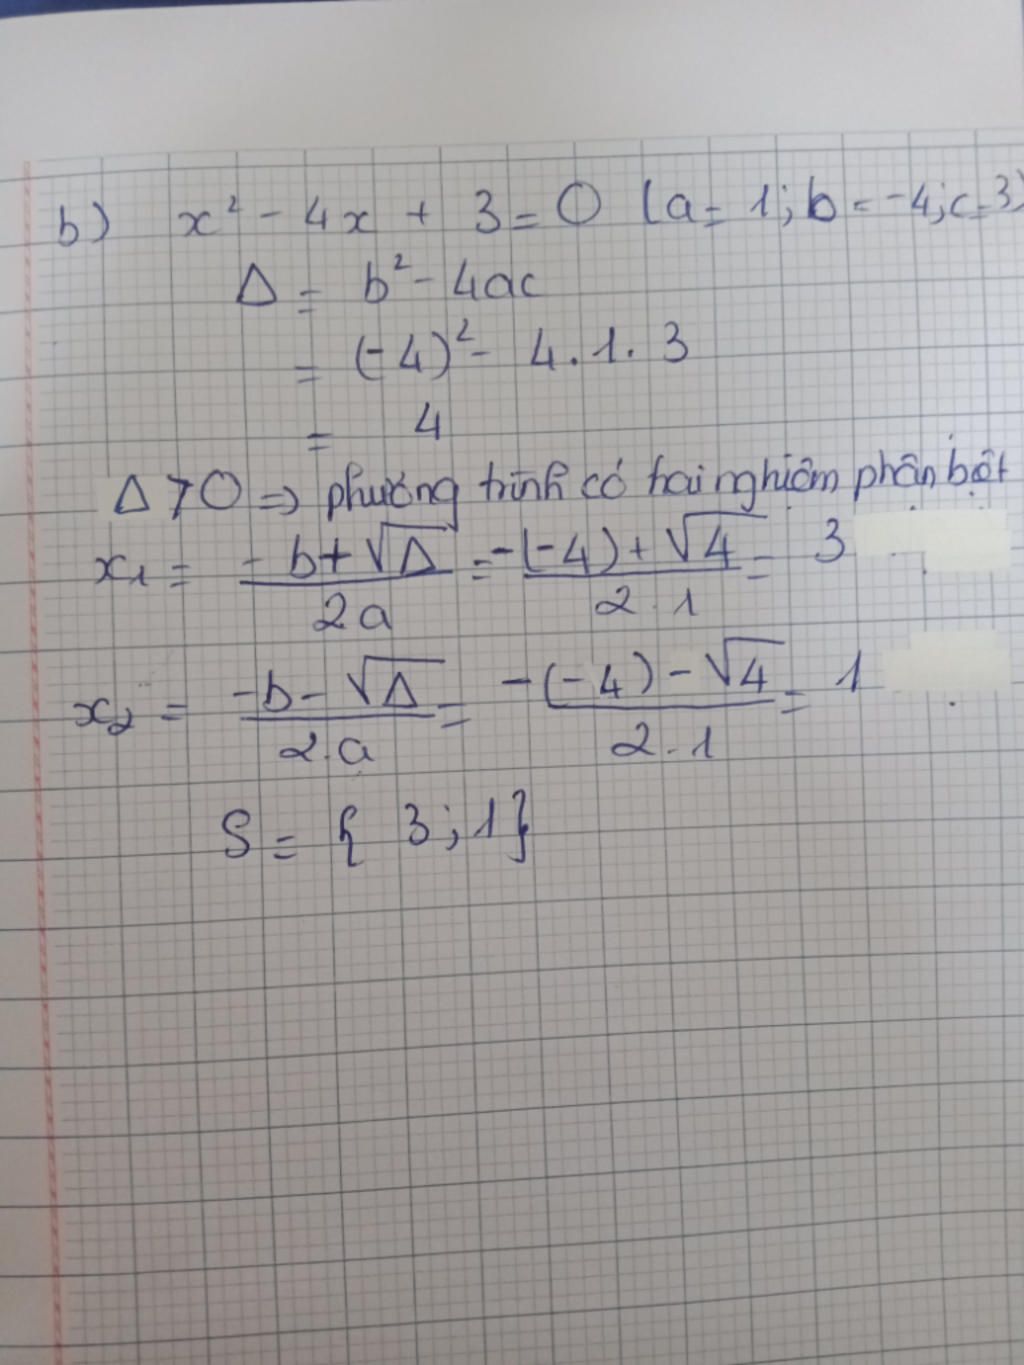 b) x² - 4x + 3 = 0 (a = 1; b = -4; c = 3)
Δ = b² - 4ac
= (-4)² - 4.1.3
= 4
Δ > 0 => phương trình có hai nghiệm phân biệt
x₁ = (-b + √Δ)/(2a) = (-(-4) + √4)/(2.1) = 3
x₂ = (-b - √Δ)/(2.a) = (-(-4) - √4)/(2.1) = 1
S = { 3; 1}